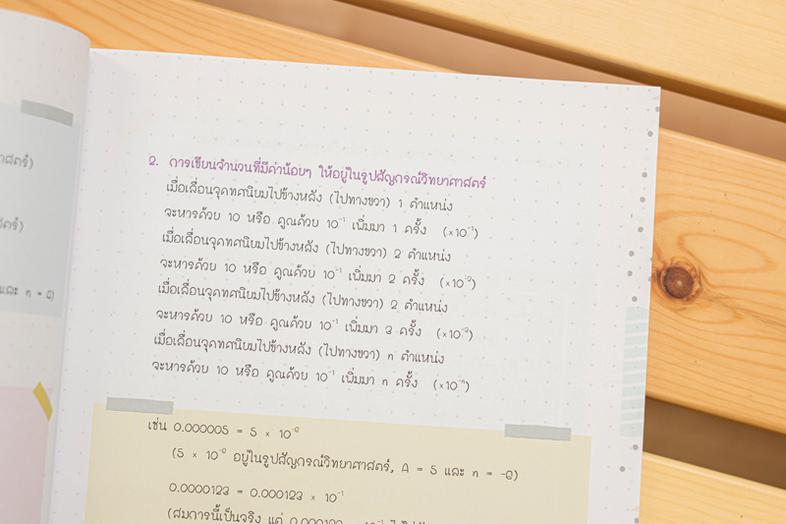 าศตร์)
ตร์)
และ n = 6)
2. การเขียนจำนวนที่มีค่าน้อยๆ ให้อยู่ในรูปสัญกรณ์วิทยาศาสตร์
เมื่อเลื่อนจุดทศนิยมไปข้างหลัง (ไปทางขวา) 1 ตำแหน่ง
จะหารด้วย 10 หรือ คูณด้วย 10⁻¹ เพิ่มมา 1 ครั้ง (×10⁻¹)
เมื่อเลื่อนจุดทศนิยมไปข้างหลัง (ไปทางขวา) 2 ตำแหน่ง
จะหารด้วย 10 หรือ คูณด้วย 10⁻¹ เพิ่มมา 2 ครั้ง (×10⁻²)
เมื่อเลื่อนจุดทศนิยมไปข้างหลัง (ไปทางขวา) 2 ตำแหน่ง
จะหารด้วย 10 หรือ คูณด้วย 10⁻¹ เพิ่มมา 3 ครั้ง (×10⁻³)
เมื่อเลื่อนจุดทศนิยมไปข้างหลัง (ไปทางขวา) n ตำแหน่ง
จะหารด้วย 10 หรือ คูณด้วย 10⁻¹ เพิ่มมา n ครั้ง (×10⁻ⁿ)
เช่น 0.000005 = 5 × 10⁻⁶
(5 × 10⁻⁶ อยู่ในรูปสัญกรณ์วิทยาศาสตร์, A = 5 และ n = -6)
0.0000123 = 0.000123 × 10⁻¹
(สมการนี้เป็นจริง แต่ 0.000123